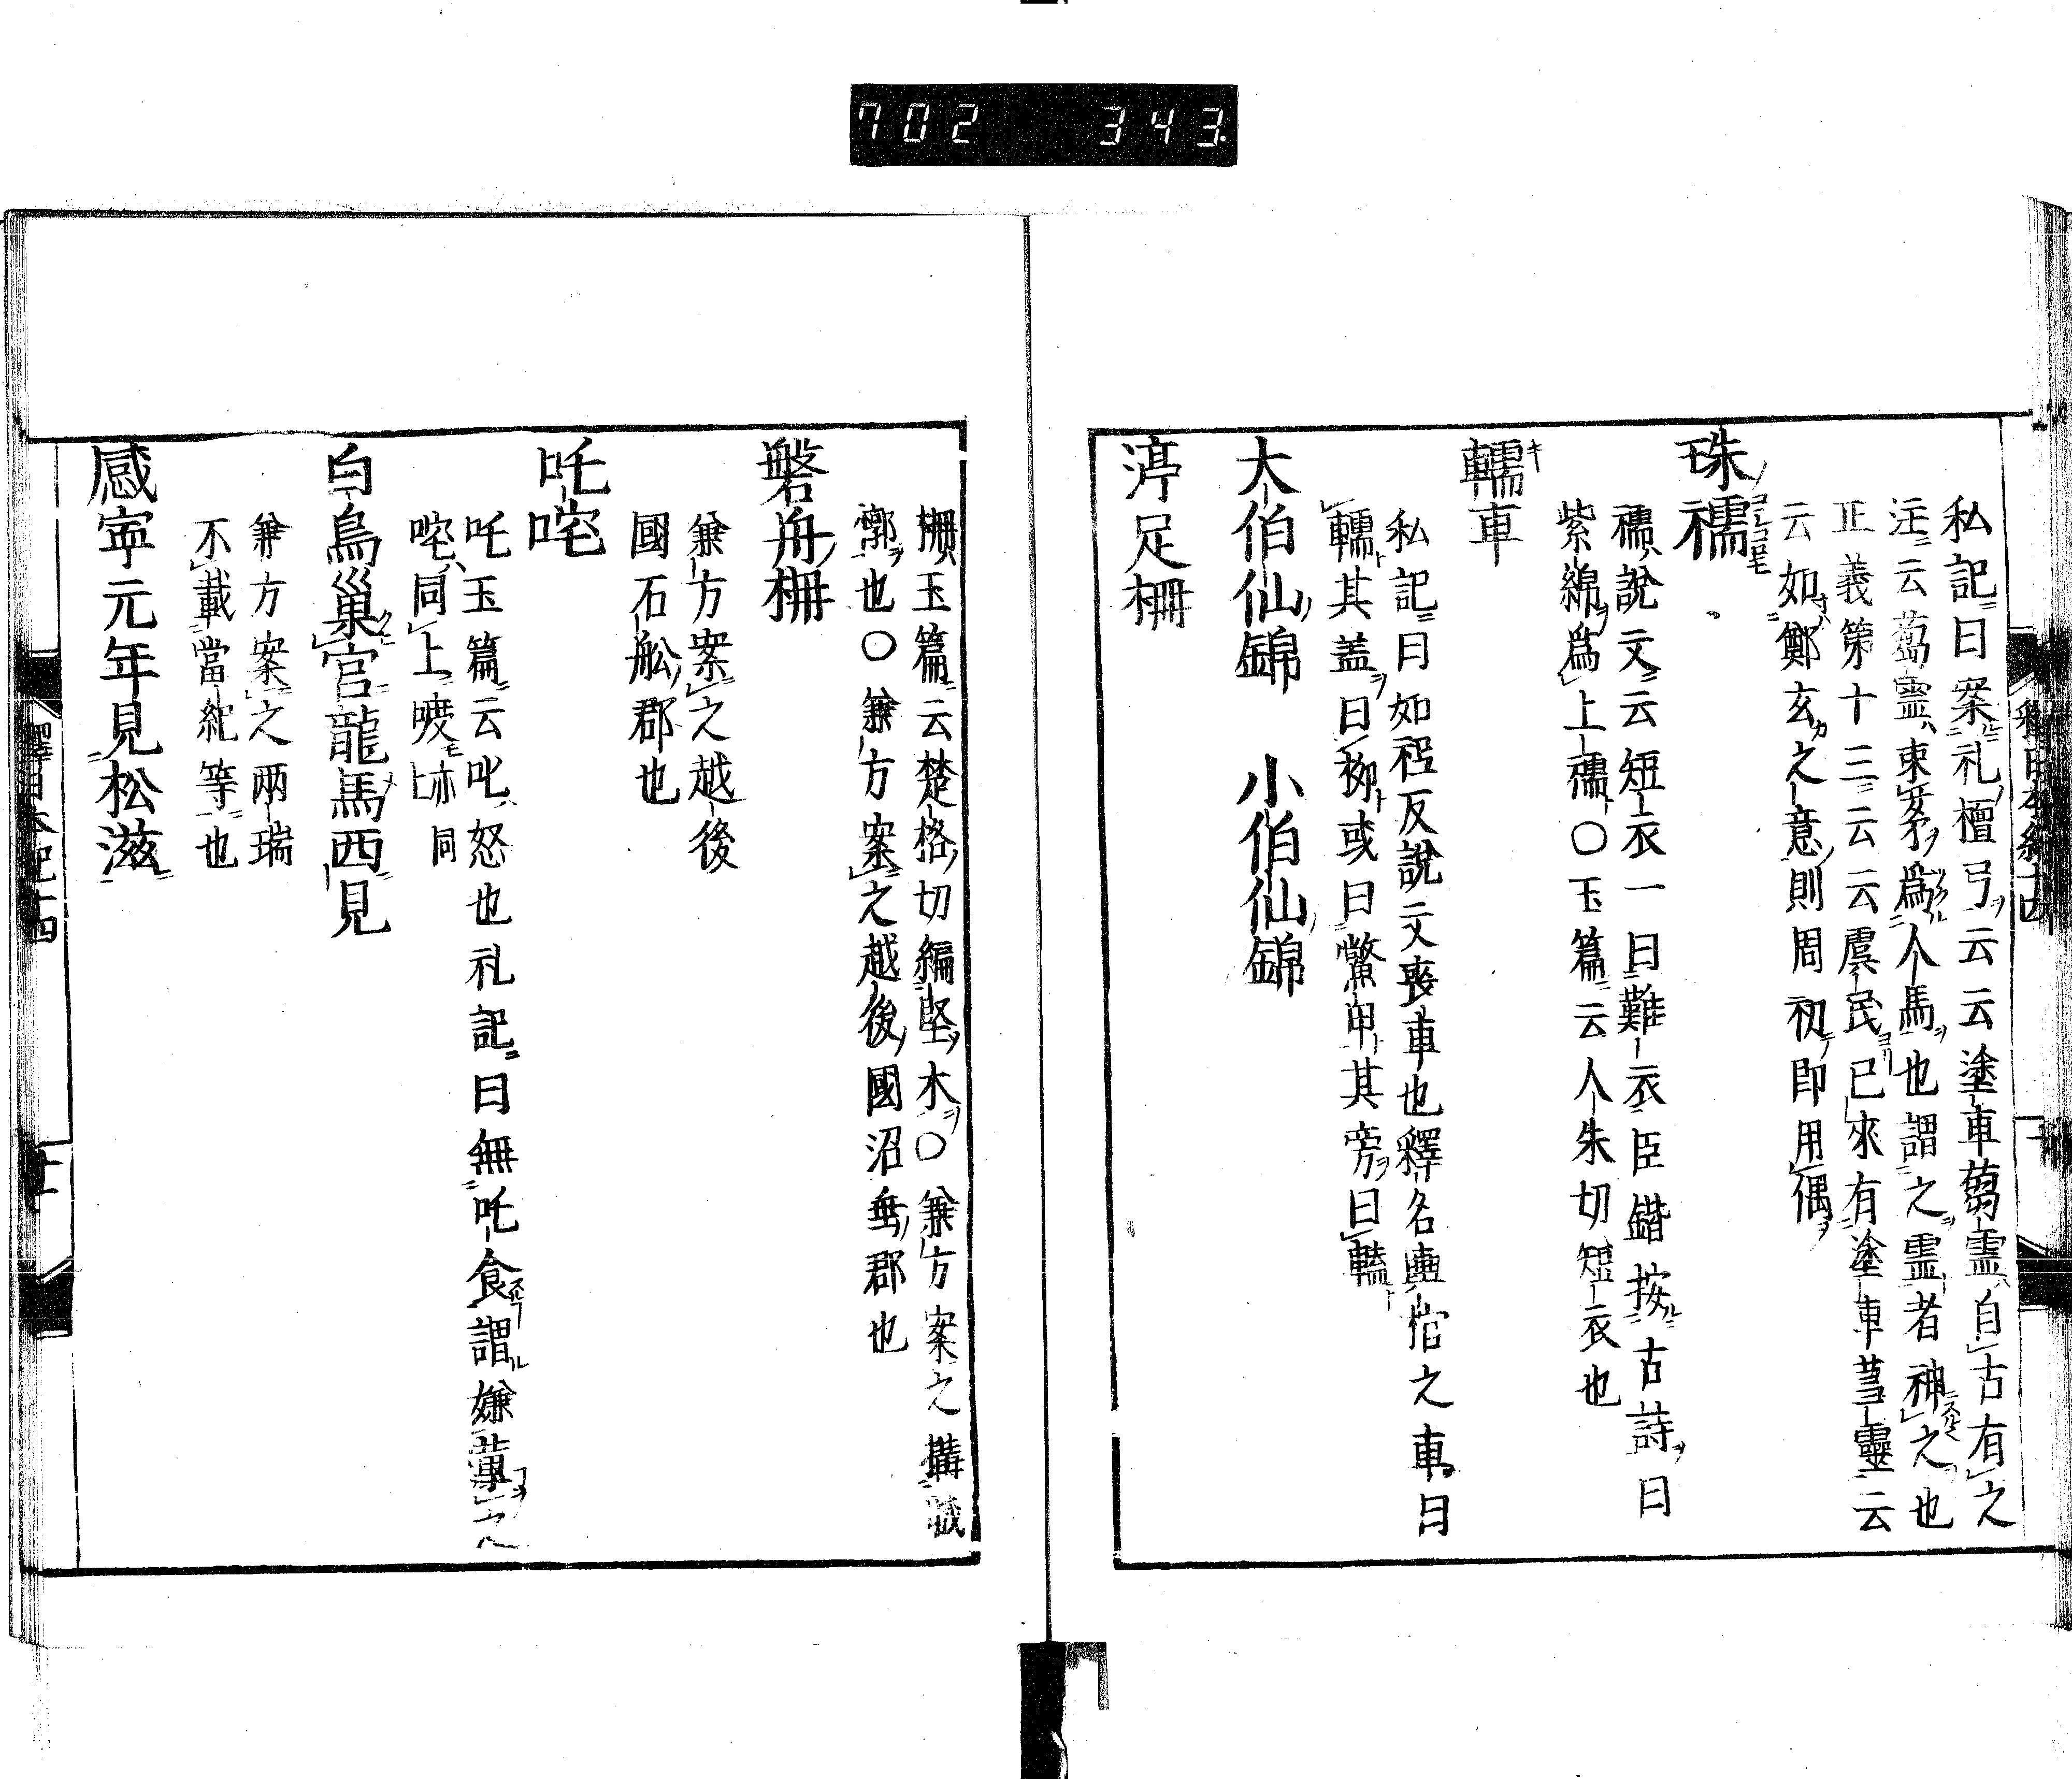 702 343
私記曰案礼檀弓云云塗車蒭霊自古有之
注云蒭霊束茅為人馬也謂之霊者神之也
正義第十三云云虞民已來有塗車蒭靈云
云如鄭玄之意則周初即用偶
珠襦
襦說文云短衣一曰難衣臣鍇按古詩曰
紫綿為上襦○玉篇云人朱切短衣也
轜車
私記曰如秖反說文喪車也釋名輿棺之車曰
轜其盖曰柳或曰鱉甲其旁曰轖
大伯仙錦 小伯仙錦
渟足柵
柵玉篇云楚格切編竪木○兼方案之搆城
墎也○兼方案之越後國沼垂郡也
磐舟柵
兼方案之越後
國石舩郡也
吒咤
吒玉篇云叱怒也礼記曰無吒食謂嫌薄之
咤同上 上亦同
白烏巢宮龍馬西見
兼方案之兩瑞
不載當紀等也
感寧元年見松滋
釋日本紀十四